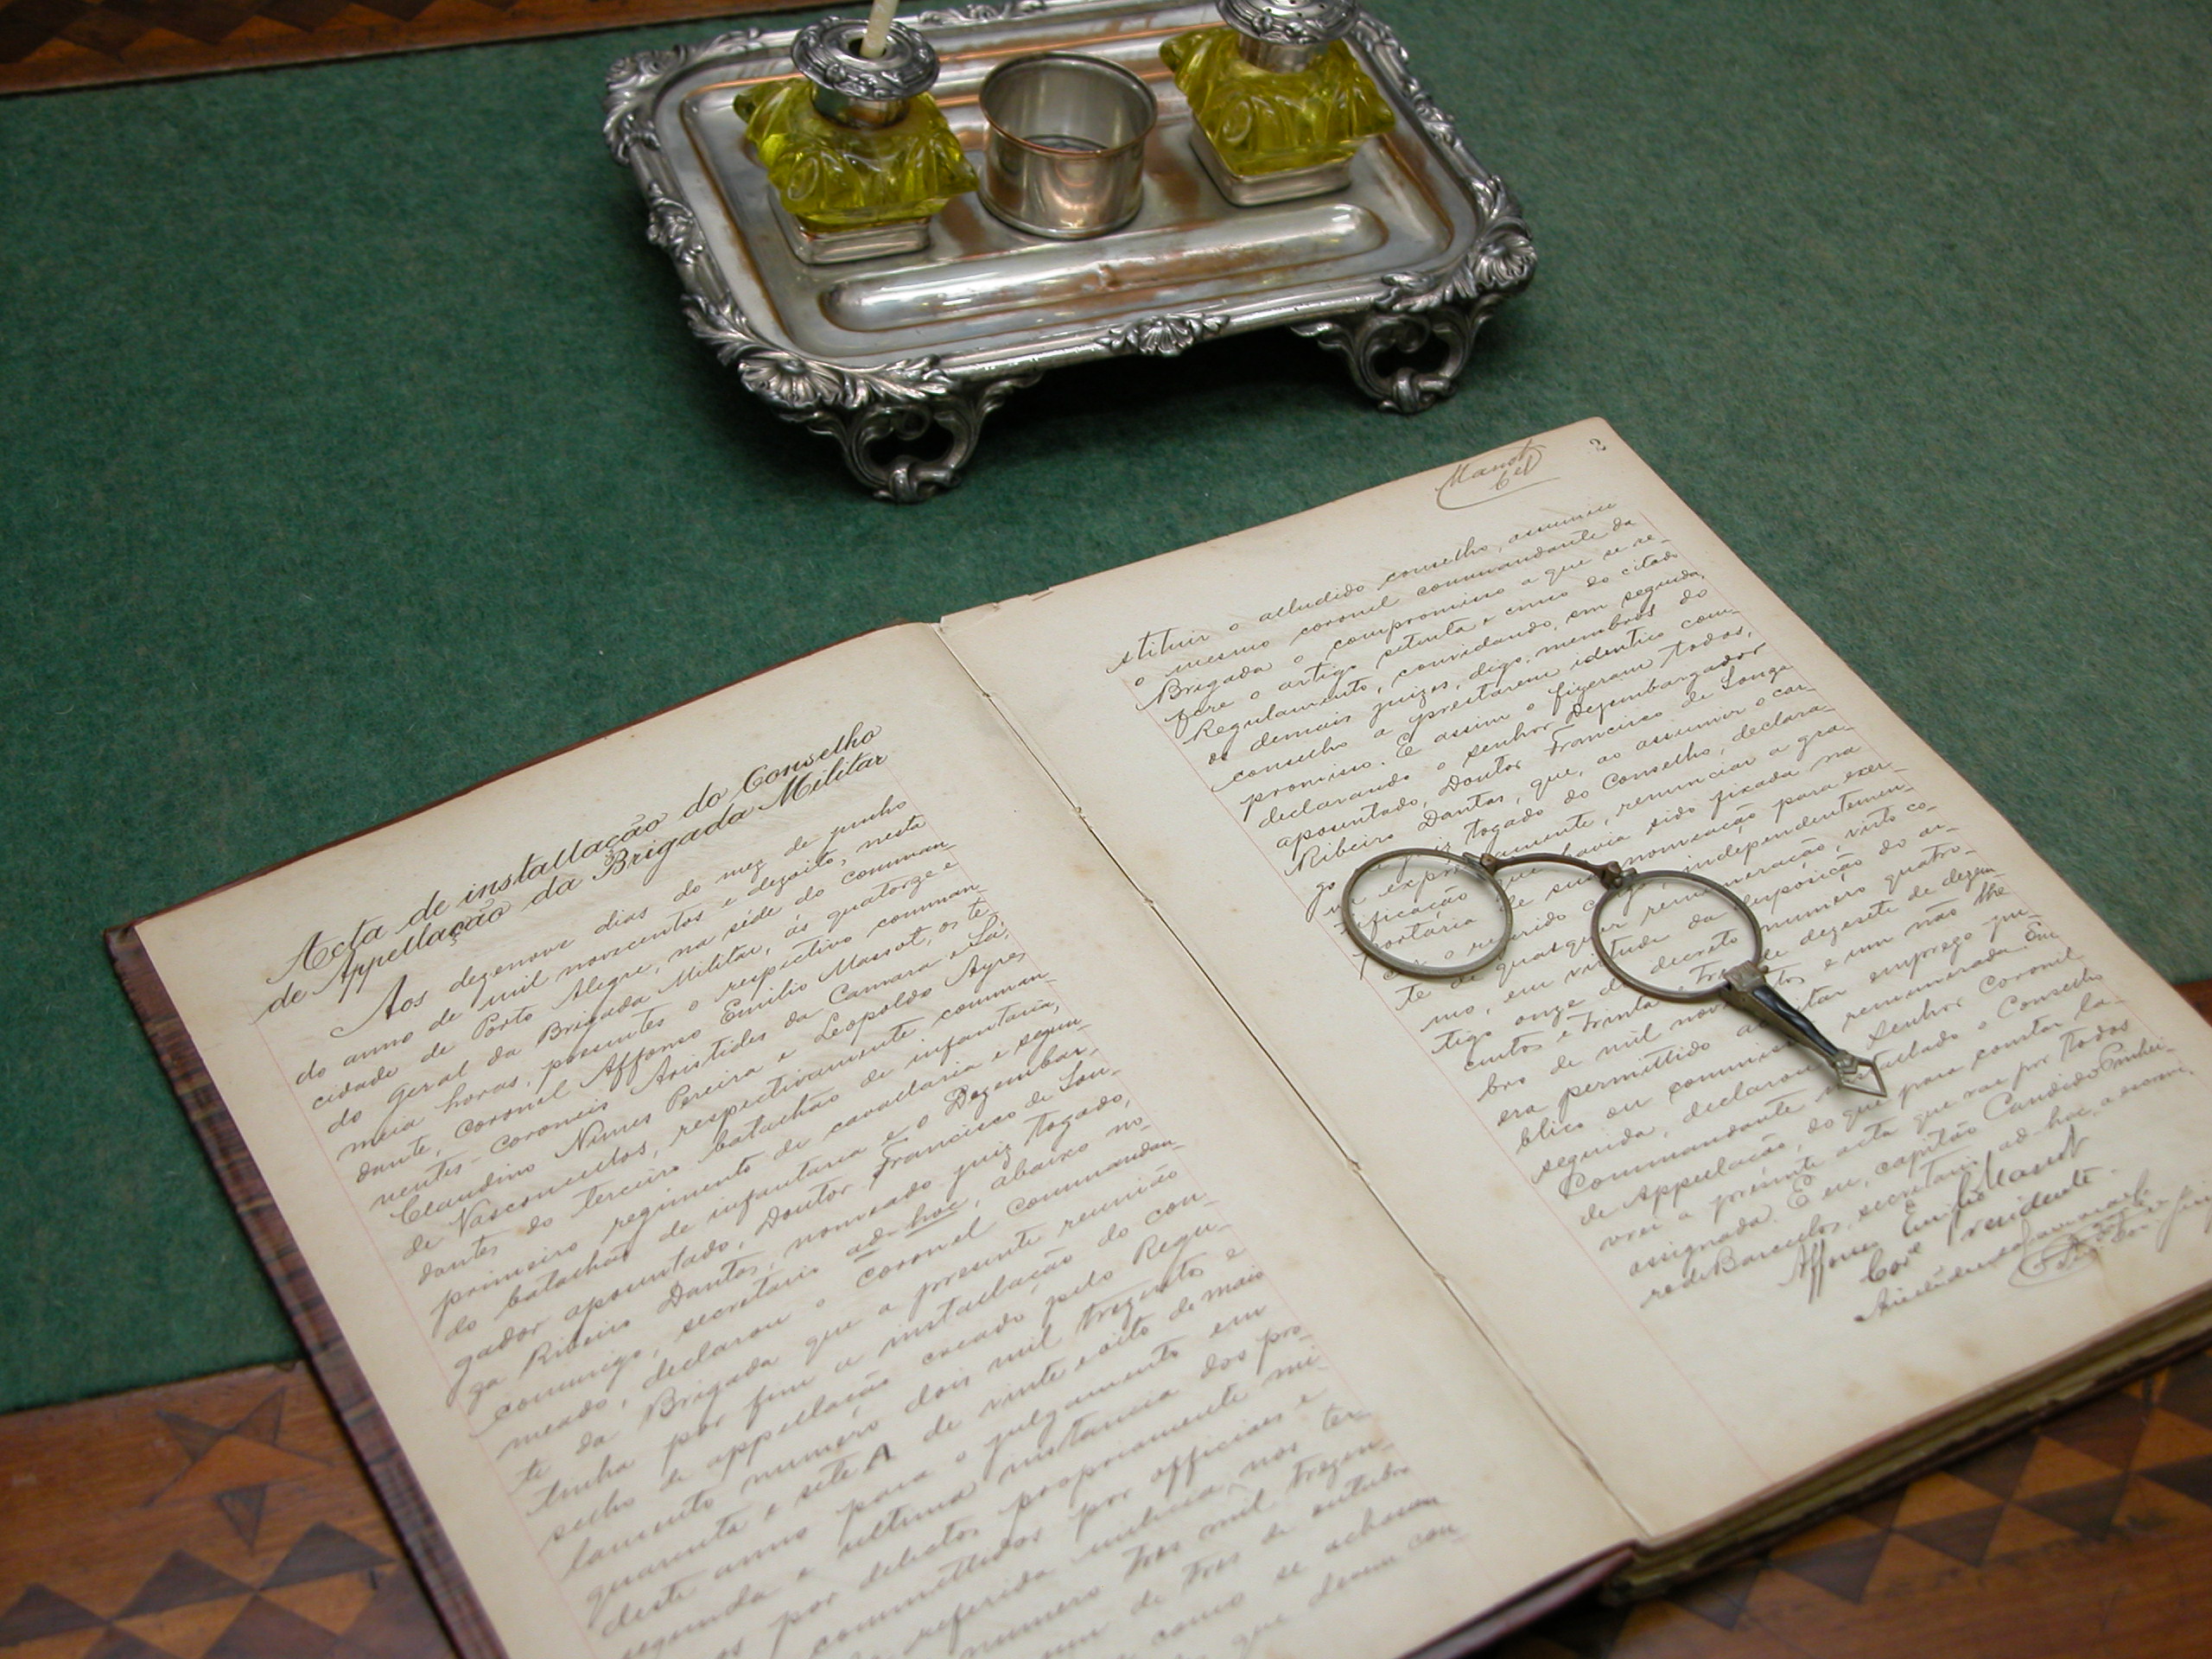 Acta de installação do Conselho
de Appellação da Brigada Militar
Aos dezenove dias do mez de junho
do anno de mil novecentos e dezoito, nesta
cidade de Porto Alegre, na séde do comman-
do geral da Brigada Militar, ás quatorze e
meia horas, presentes o respectivo comman-
dante, coronel Affonso Emilio Massot, os te-
nentes-coroneis Aristides da Camara e Sá,
Claudino Nunes Pereira e Leopoldo Ayres
de Vasconcellos, respectivamente comman-
dantes do terceiro batalhão de infantaria,
primeiro regimento de cavallaria e segun-
do batalhão de infantaria e o Dezembar-
gador aposentado, Doutor Francisco de Sou-
za Ribeiro Dantas, nomeado juiz togado,
commigo, secretario ad-hoc, abaixo no-
meado, declarou o coronel commandan-
te da Brigada que a presente reunião
tinha por fim a installação do con-
selho de appellação creado pelo Regu-
lamento numero dois mil trezentos e
quarenta e sete A de vinte e oito de maio
deste anno para o julgamento em
segunda e ultima instancia dos pro-
por delictos propriamente mi-
commettidos por officiaes e
referida milicia, nos ter-
numero tres mil trezen-
de tres de outubro
como se acham
que devem con-
2
Massot
Cel
stituir o alludido conselho, assumiu
o mesmo coronel commandante da
Brigada o compromisso a que se re-
fere o artigo setenta e cinco do citado
Regulamento, convidando, em seguida,
os demais juizes, digo, membros do
conselho a prestarem identico com-
promisso. E assim o fizeram todos,
declarando o senhor Dezembargador
aposentado, Doutor Francisco de Souza
Ribeiro Dantas, que, ao assumir o car-
go de juiz togado do Conselho, declara-
va expressamente, renunciar a gra-
tificação que havia sido fixada na
portaria de sua nomeação para exer-
cer o referido cargo, independentemen-
te de quasquer remuneração, visto co-
mo, em virtude da disposição do ar-
tigo onze do decreto numero quatro-
centos e trinta e tres de dezesete de dezem-
bro de mil novecentos e um não lhe
era permittido acceitar emprego pu-
blico ou commissão remunerada. Em
seguida, declarou o senhor Coronel
Commandante installado o Conselho
de Appellação, do que para constar la-
vrei a presente acta que vae por todos
assignada. E eu, capitão Candido Pinhei-
ro de Barcellos, secretario ad-hoc, a escrevi.
Affonso Emilio Massot
Cor.el Presidente.